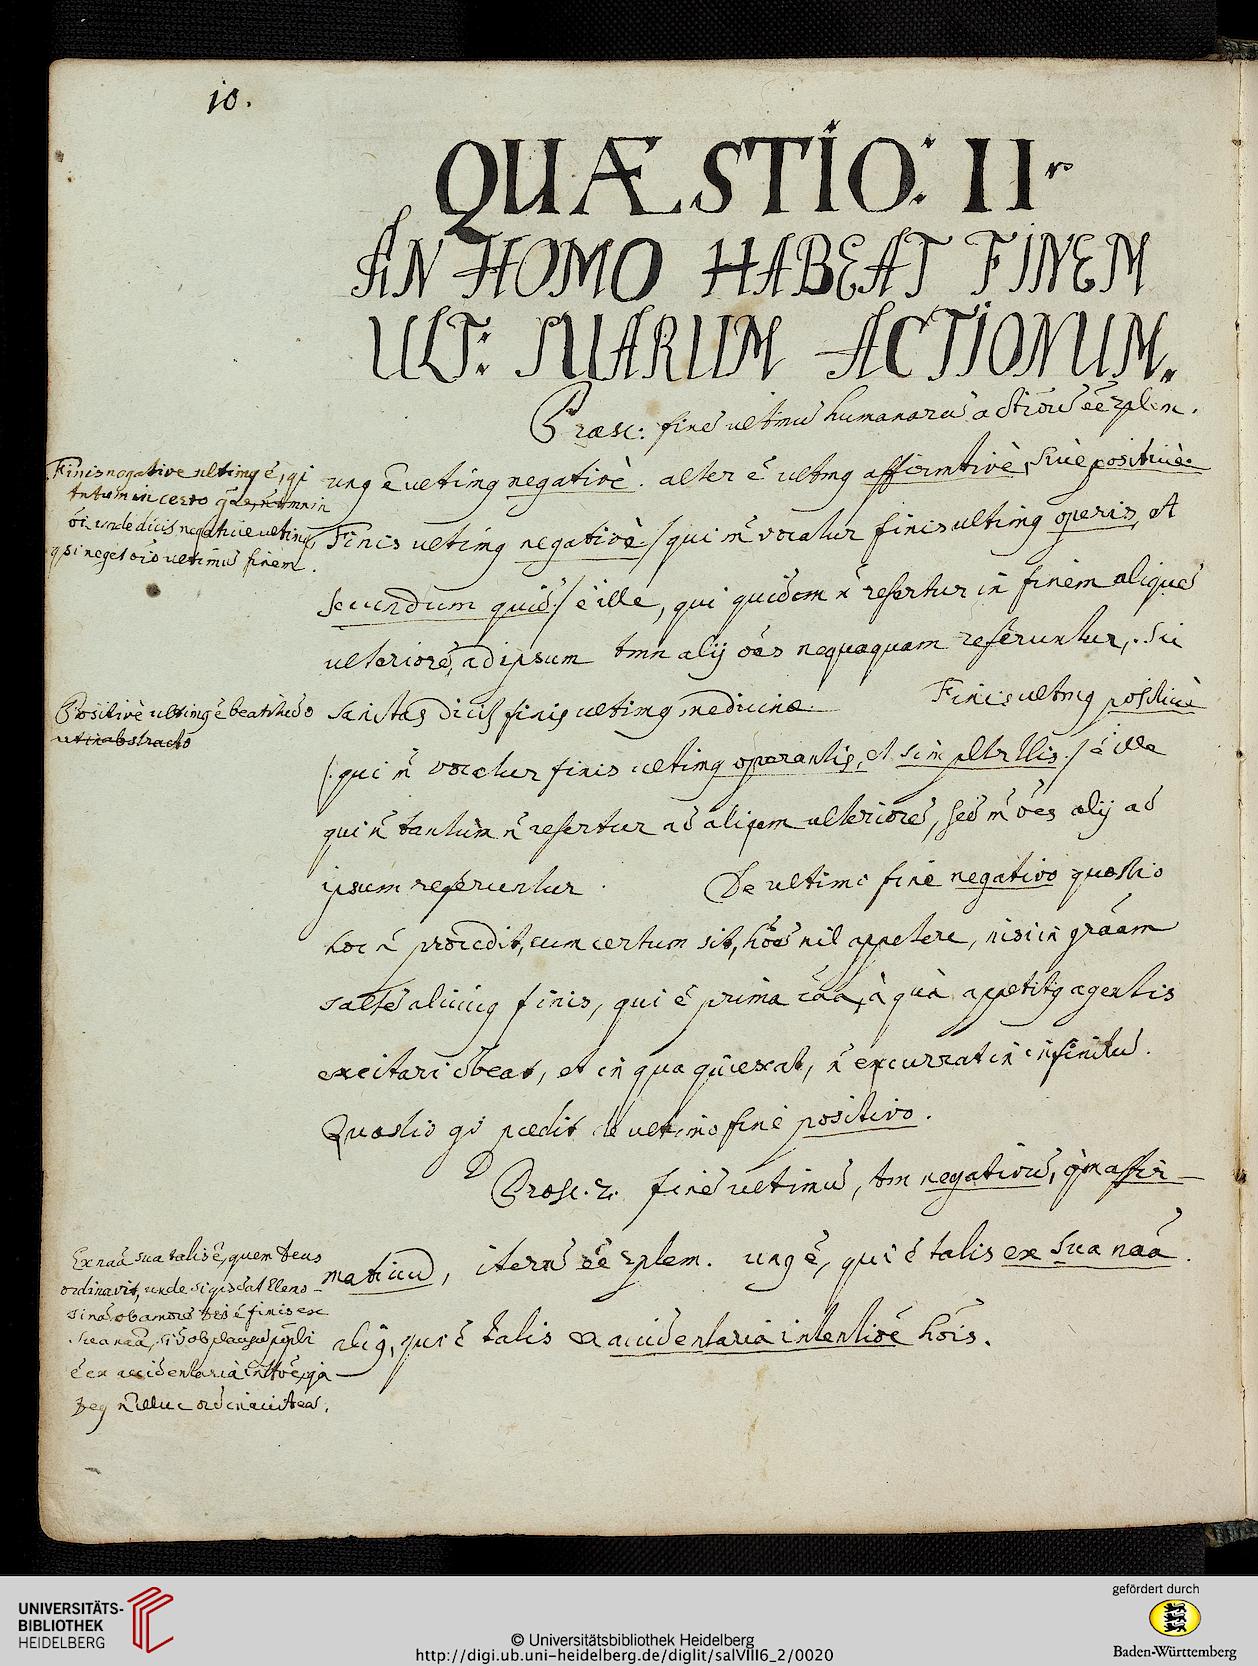 10.
QUÆSTIO: II
AN HOMO HABEAT FINEM
ULT: SUARUM ACTIONUM.
Præsc: finẽ ultimũ humanarũ actionũ ẽẽ 2plicem.
unq ẽ ultimq negativè. alter ẽ ultmq affirmtivè, sivè positivè.
Finis ultimq negativè / qui vocatur finis ultimq operis, et
secundum quid / ẽ ille, qui quidem ñ refertur in finem aliquẽ
ulteriorẽ, ad ipsum tmn alij oẽs nequaquam referuntur, Sic
sanitas finis ultimq medicinæ. Finis ultmq positivè
/ qui vocatur finis ultimq operantis, et / ẽ ille
qui ñ tantum ñ refertur ad aliqem ulteriorẽ, sed oẽs alij ad
ipsum referuntur. De ultimo finẽ negativo quæstio
hoc ñ procedit, cum certum sit, nil appetere, nisi in grãam
saltẽ alicuiq finis, qui ẽ prima cãa, à quà appetitq agentis
excitari dẽbeat, et in qua quiescat, ñ excurrat in infinitũ.
Quæstio pcedit de ultimo finẽ positivo.
Præsc. 2. finẽ ultimũ, tm negativũ, qm affir-
mativũ, iterũ ẽẽ 2plem. unq ẽ, qui ẽ talis ex sua naã.
aliq, qui ẽ talis ex accidentaria intentiõe hõis.
Finis negative ultimq ẽ, qi
tntum in certo
unde dicis negative ultimq
qsi neget ultimũ finem.
Positivè ultimq ẽ beatitudo
ut in abstracto
Ex naã sua talis ẽ, quem Deus
ordinavit, unde si qis dat Eleno-
sinã ob amorẽ Dei ẽ finis ex
sua naã, si ob plausũ ppli
ẽ ex accidentaria inttõe, qia
Deq ñ illuc ordinavit eã.
UNIVERSITÄTS-
BIBLIOTHEK
HEIDELBERG
© Universitätsbibliothek Heidelberg
http://digi.ub.uni-heidelberg.de/diglit/salVIII6_2/0020
gefördert durch
Baden-Württemberg